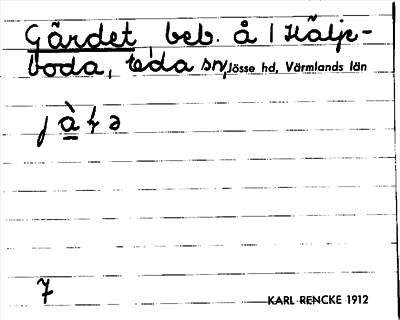 Gärdet, beb. å 1 Hälje-
boda, Eda sn, Jösse hd, Värmlands län
j à ɫ ə
7
KARL RENCKE 1912